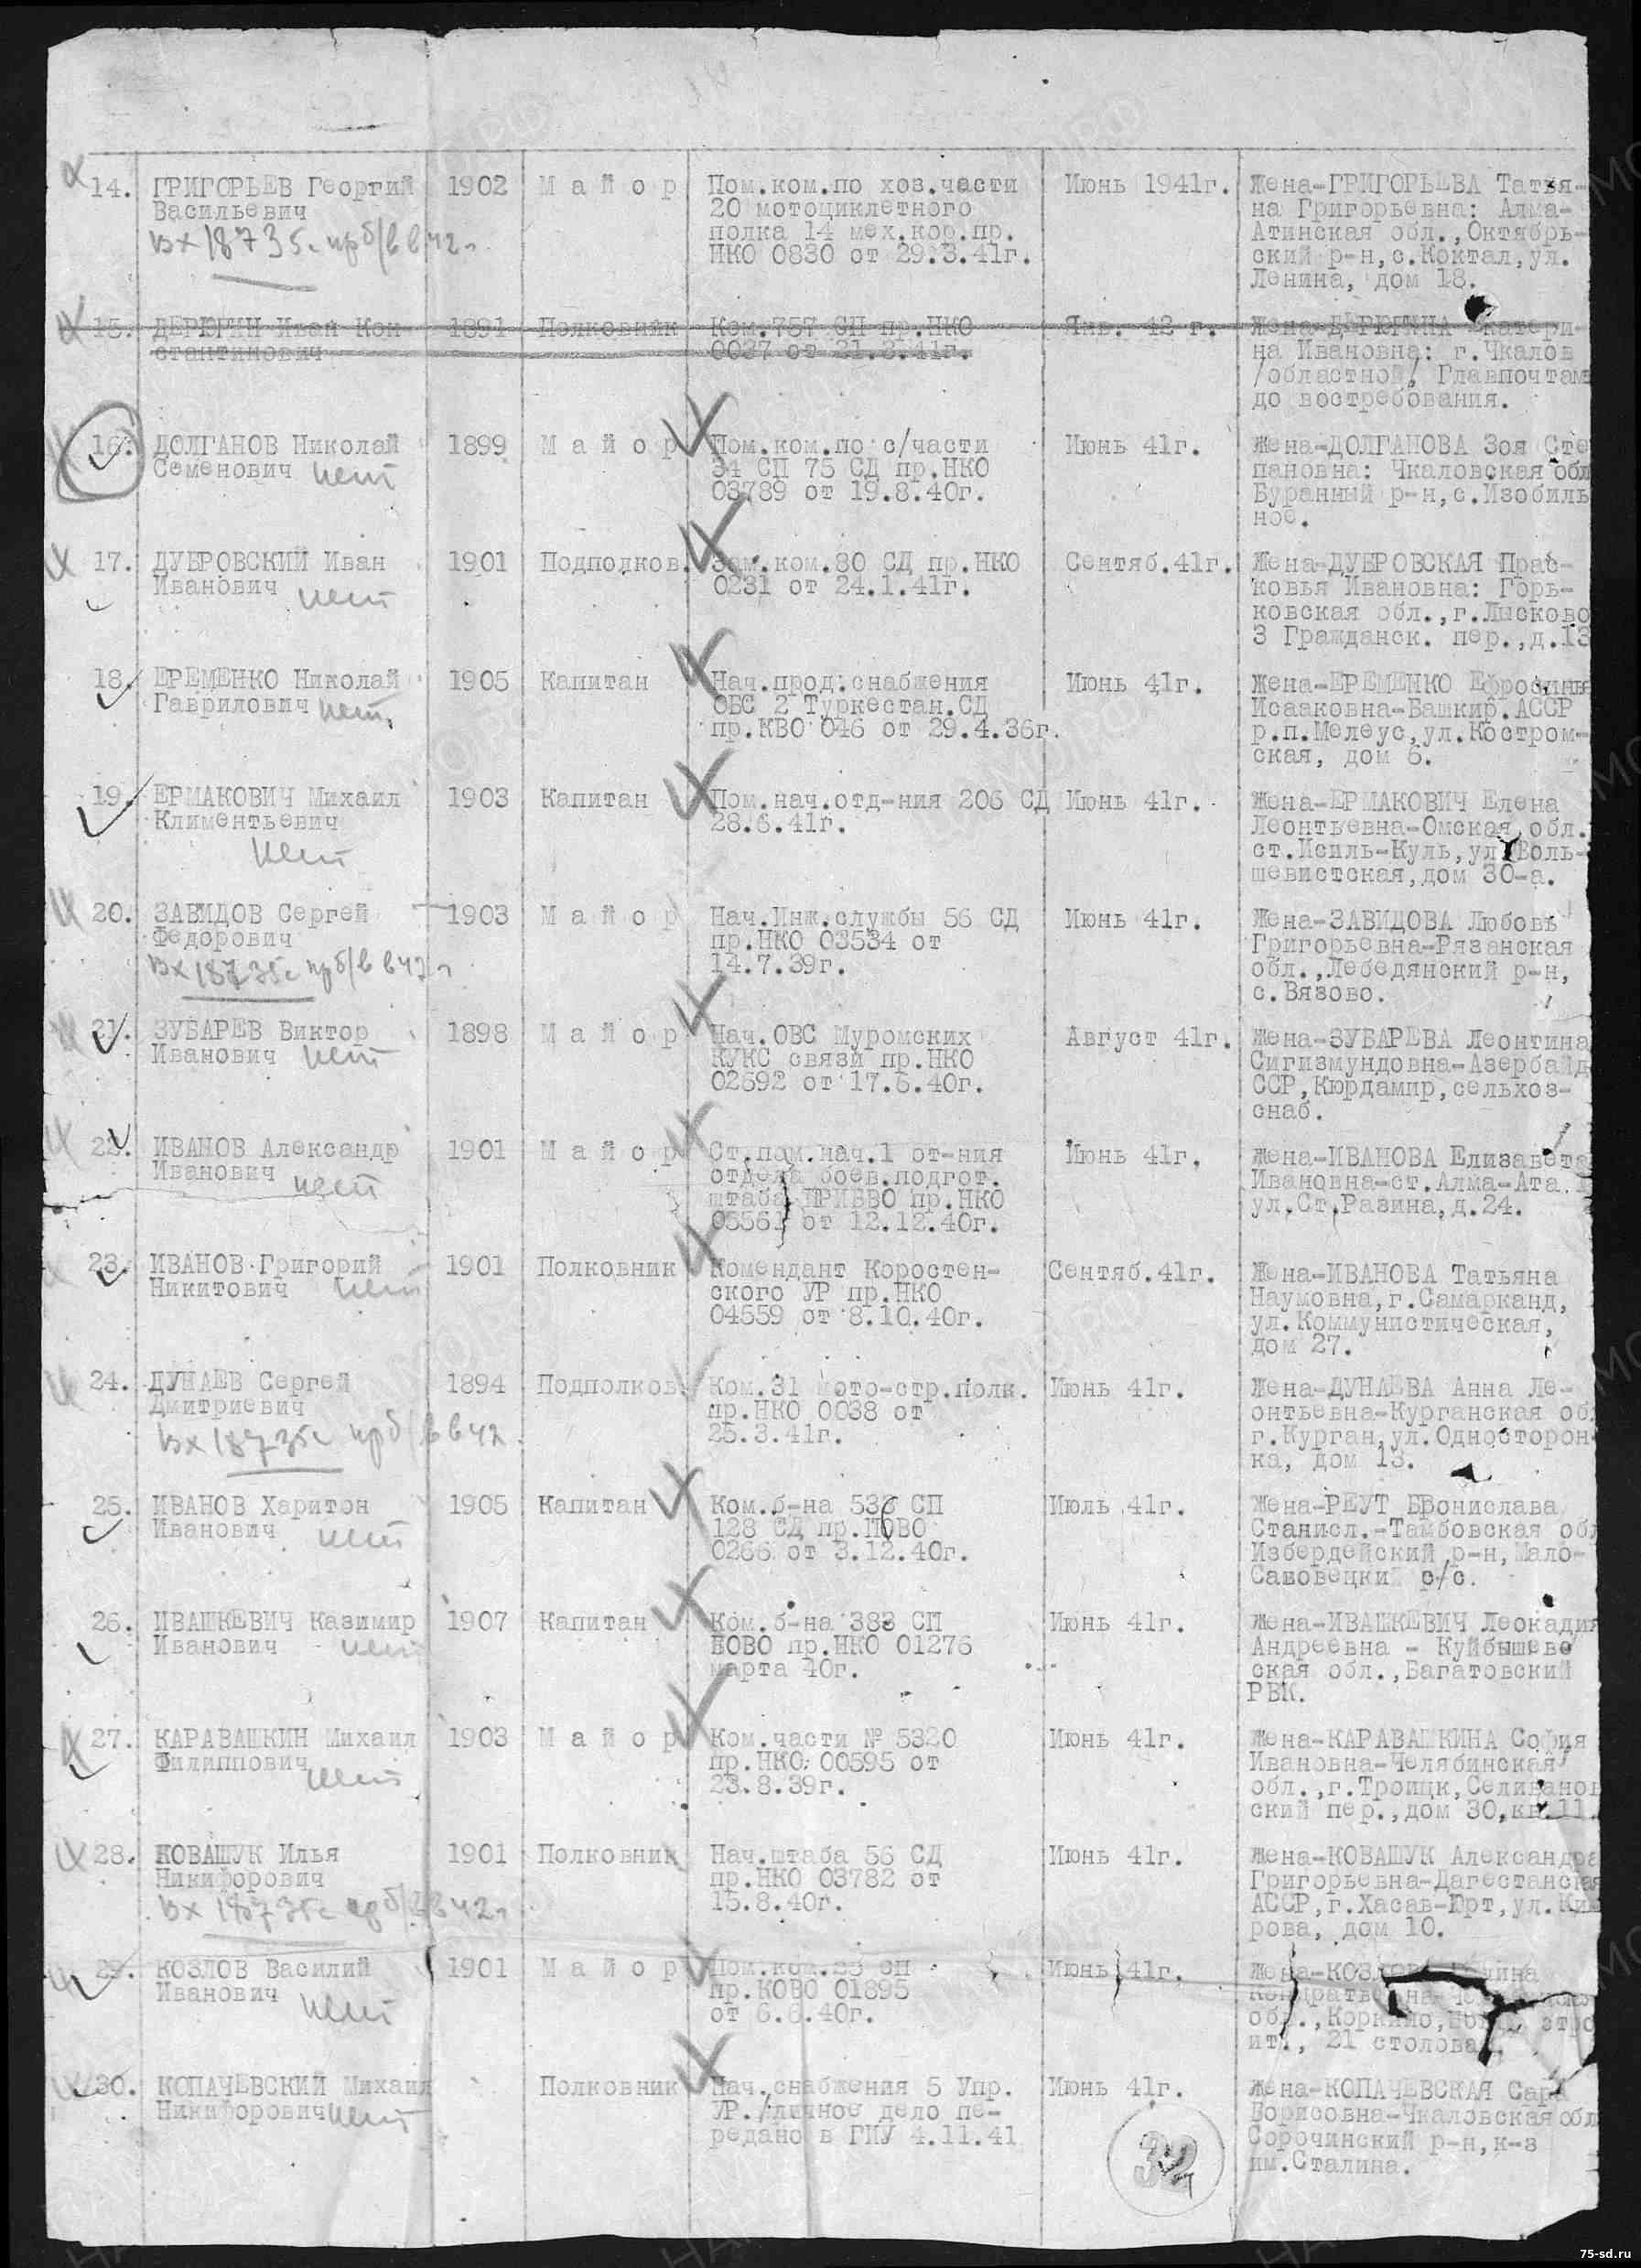 14. ГРИГОРЬЕВ Георгий 1902 М а й о р Пом.ком.по хоз.части Июнь 1941г. Жена-ГРИГОРЬЕВА Татья-
Васильевич 20 мотоциклетного на Григорьевна: Алма-
вх 18735с полка 14 мех.кор.пр. Атинская обл.,Октябрь-
НКО 0830 от 29.3.41г. ский р-н,с.Коктал,ул.
Ленина, дом 18.
15. ДЕРЮГИН Иван Кон 1891 Полковник Ком.757 СП пр.НКО Янв. 42 г. Жена-ДЕРЮГИНА Екатери-
стантинович 0037 от 21.3.41г. на Ивановна: г.Чкалов
/областной/ Главпочтам
до востребования.
16. ДОЛГАНОВ Николай 1899 М а й о р Пом.ком.по с/части Июнь 41г. Жена-ДОЛГАНОВА Зоя Сте
Семенович нет 34 СП 75 СД пр.НКО пановна: Чкаловская обл
03789 от 19.8.40г. Буранный р-н,с.Изобиль
ное.
17. ДУБРОВСКИЙ Иван 1901 Подполков. Зам.ком.80 СД пр.НКО Сентяб.41г. Жена-ДУБРОВСКАЯ Прас-
Иванович нет 0231 от 24.1.41г. ковья Ивановна: Горь-
ковская обл.,г.Лысково
3 Гражданск. пер.,д.13
18. ЕРЕМЕНКО Николай 1905 Капитан Нач.прод.снабжения Июнь 41г. Жена-ЕРЕМЕНКО Ефросинья
Гаврилович нет ОБС 2 Туркестан.СД Исааковна-Башкир.АССР
пр.КВО 046 от 29.4.36г. р.п.Мелеус,ул.Костром-
ская, дом 6.
19. ЕРМАКОВИЧ Михаил 1903 Капитан Пом.нач.отд-ния 206 СД Июнь 41г. Жена-ЕРМАКОВИЧ Елена
Климентьевич 28.6.41г. Леонтьевна-Омская обл.
нет ст.Исиль-Куль,ул.Боль-
шевистская,дом 30-а.
20. ЗАВИДОВ Сергей 1903 М а й о р Нач.Инж.службы 56 СД Июнь 41г. Жена-ЗАВИДОВА Любовь
Федорович пр.НКО 03534 от Григорьевна-Рязанская
вх 18735с 14.7.39г. обл.,Лебедянский р-н,
с.Вязово.
21. ЗУБАРЕВ Виктор 1898 М а й о р Нач.ОВС Муромских Август 41г. Жена-ЗУБАРЕВА Леонтина
Иванович нет КУКС связи пр.НКО Сигизмундовна-Азербайд
02692 от 17.6.40г. ССР,Кюрдамир,сельхоз-
снаб.
22. ИВАНОВ Александр 1901 М а й о р Ст.пом.нач.1 от-ния Июнь 41г. Жена-ИВАНОВА Елизавета
Иванович нет отдела боев.подгот. Ивановна-ст.Алма-Ата
штаба ПРИБВО пр.НКО ул.Ст.Разина,д.24.
05561 от 12.12.40г.
23. ИВАНОВ Григорий 1901 Полковник Комендант Коростен- Сентяб.41г. Жена-ИВАНОВА Татьяна
Никитович нет ского УР пр.НКО Наумовна,г.Самарканд,
04559 от 8.10.40г. ул.Коммунистическая,
дом 27.
24. ДУНАЕВ Сергей 1894 Подполков. Ком.31 мото-стр.полк. Июнь 41г. Жена-ДУНАЕВА Анна Ле-
Дмитриевич пр.НКО 0038 от онтьевна-Курганская об
вх 18735с 25.3.41г. г.Курган,ул.Односторон-
ка, дом 13.
25. ИВАНОВ Харитон 1905 Капитан Ком.б-на 533 СП Июль 41г. Жена-РЕУТ Бронислава
Иванович нет 128 СД пр.ПОВО Станисл.-Тамбовская об
0266 от 3.12.40г. Избердейский р-н,Мало-
Сановецкий с/с.
26. ИВАШКЕВИЧ Казимир 1907 Капитан Ком.б-на 383 СП Июнь 41г. Жена-ИВАШКЕВИЧ Леокадия
Иванович нет БОВО пр.НКО 01276 Андреевна - Куйбышевс
марта 40г. ская обл.,Багатовский
РВК.
27. КАРАВАШКИН Михаил 1903 М а й о р Ком.части № 5320 Июнь 41г. Жена-КАРАВАШКИНА София
Филиппович нет пр.НКО 00595 от Ивановна-Челябинская
23.8.39г. обл.,г.Троицк,Селиванов
ский пер.,дом 30,кв.11.
28. КОВАШУК Илья 1901 Полковник Нач.штаба 56 СД Июнь 41г. Жена-КОВАШУК Александра
Никифорович пр.НКО 03782 от Григорьевна-Дагестанская
вх 18735с 15.8.40г. АССР,г.Хасав-Юрт,ул.Ки
рова, дом 10.
29. КОЗЛОВ Василий 1901 М а й о р Пом.ком.25 СП Июнь 41г. Жена-КОЗЛОВА
Иванович пр.КОВО 01895 Кондратьевна-
нет от 6.6.40г. обл.,Коркино,
ит., 21 столовая.
30. КОПАЧЕВСКИЙ Михаил Полковник Нач.снабжения 5 Упр. Июнь 41г. Жена-КОПАЧЕВСКАЯ Сара
Никифорович нет УР./личное дело пе- Борисовна-Чкаловская обл
редано в ГИУ 4.11.41 Сорочинский р-н,к-з
им.Сталина.
32
75-sd.ru